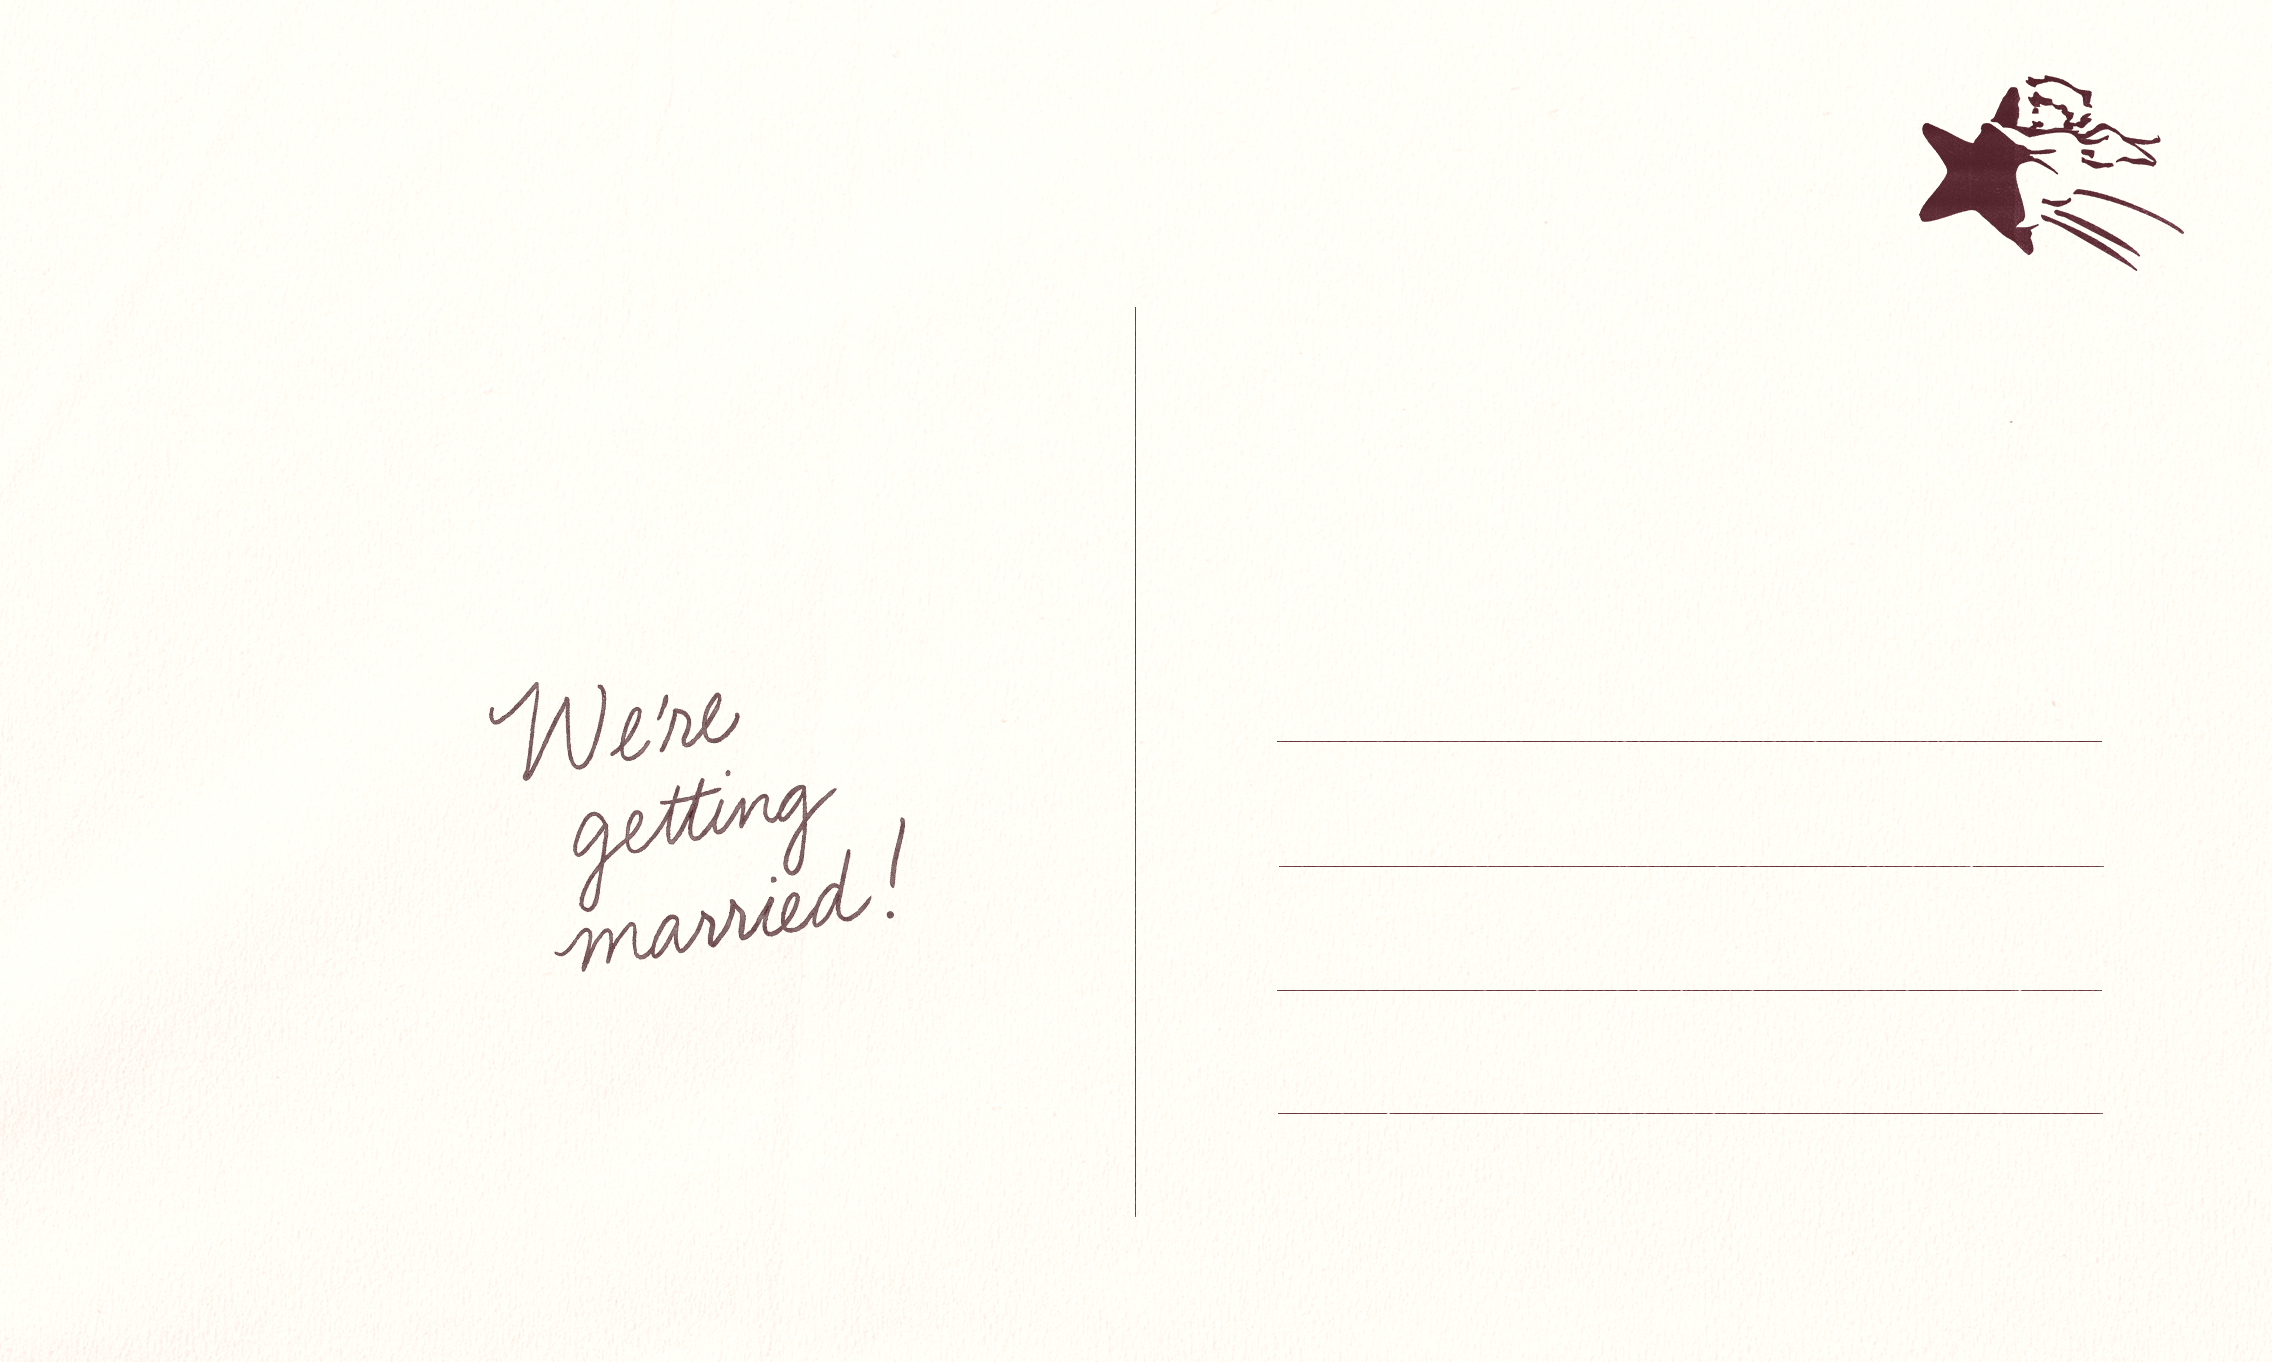 We're
getting
married!